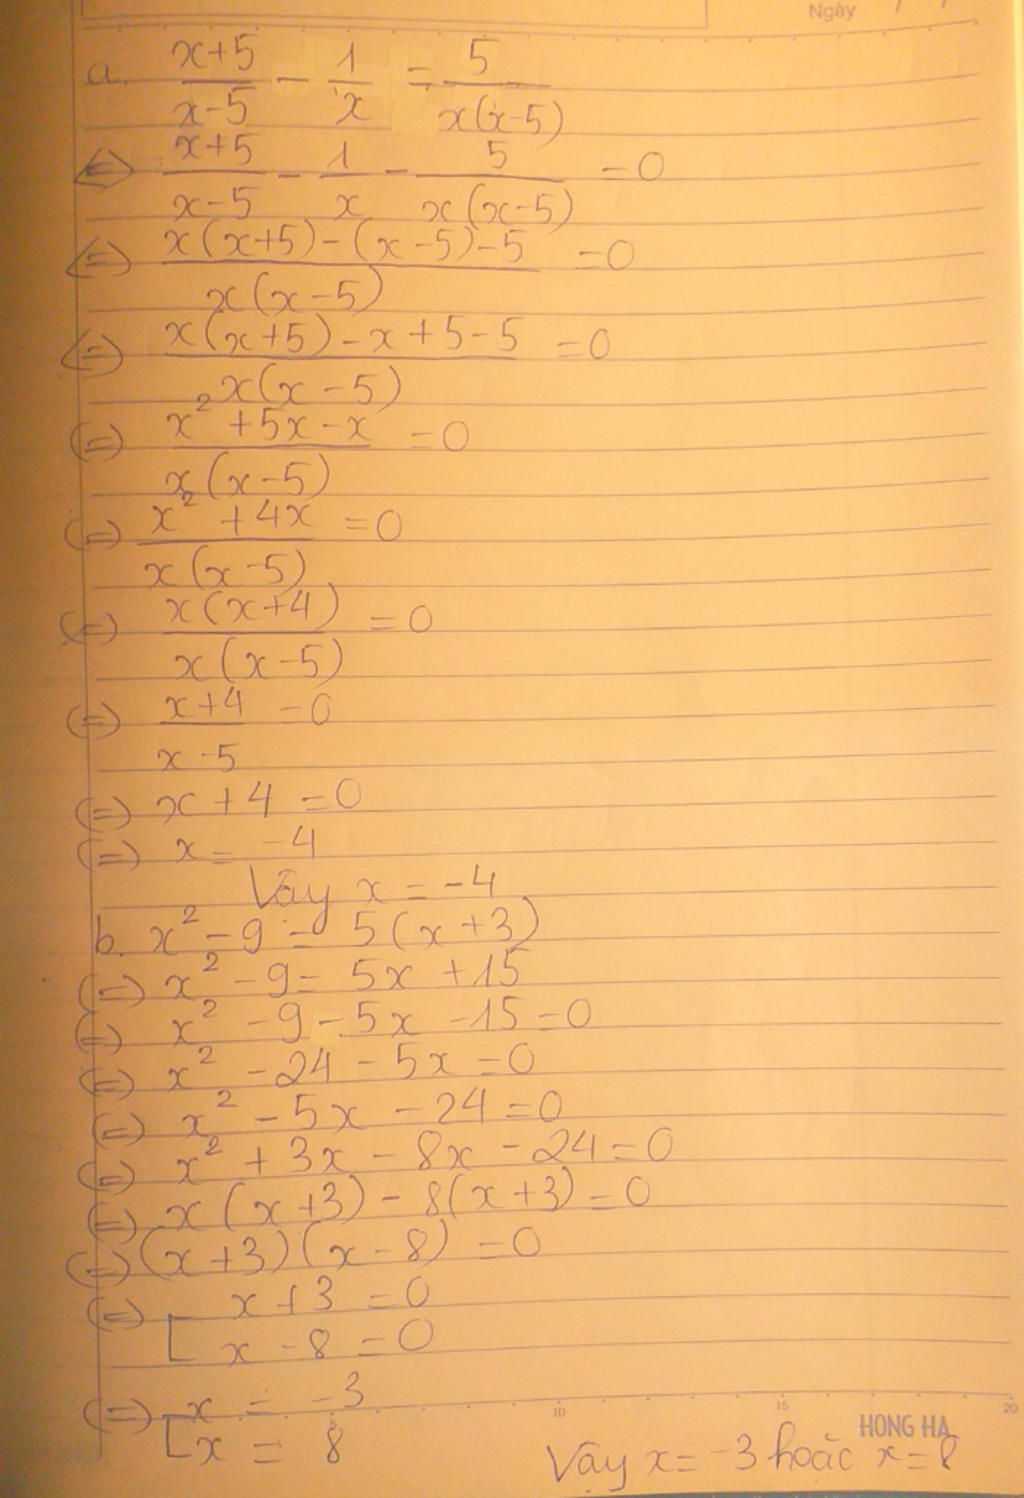 Ngày / /
a. \frac{x+5}{x-5} - \frac{1}{x} = \frac{5}{x(x-5)}
(=) \frac{x+5}{x-5} - \frac{1}{x} - \frac{5}{x(x-5)} = 0
(=) \frac{x(x+5)-(x-5)-5}{x(x-5)} = 0
(=) \frac{x(x+5)-x+5-5}{x(x-5)} = 0
(=) \frac{x²+5x-x}{x(x-5)} = 0
(=) \frac{x²+4x}{x(x-5)} = 0
(=) \frac{x(x+4)}{x(x-5)} = 0
(=) \frac{x+4}{x-5} = 0
(=) x + 4 = 0
(=) x = -4
Vậy x = -4
b. x² - 9 = 5(x+3)
(=) x² - 9 = 5x + 15
(=) x² - 9 - 5x - 15 = 0
(=) x² - 24 - 5x = 0
(=) x² - 5x - 24 = 0
(=) x² + 3x - 8x - 24 = 0
(=) x(x+3) - 8(x+3) = 0
(=) (x+3)(x-8) = 0
(=) [ x + 3 = 0
x - 8 = 0
(=) [ x = -3
x = 8
5 10 15 20
HONG HA
Vậy x = -3 hoặc x = 8